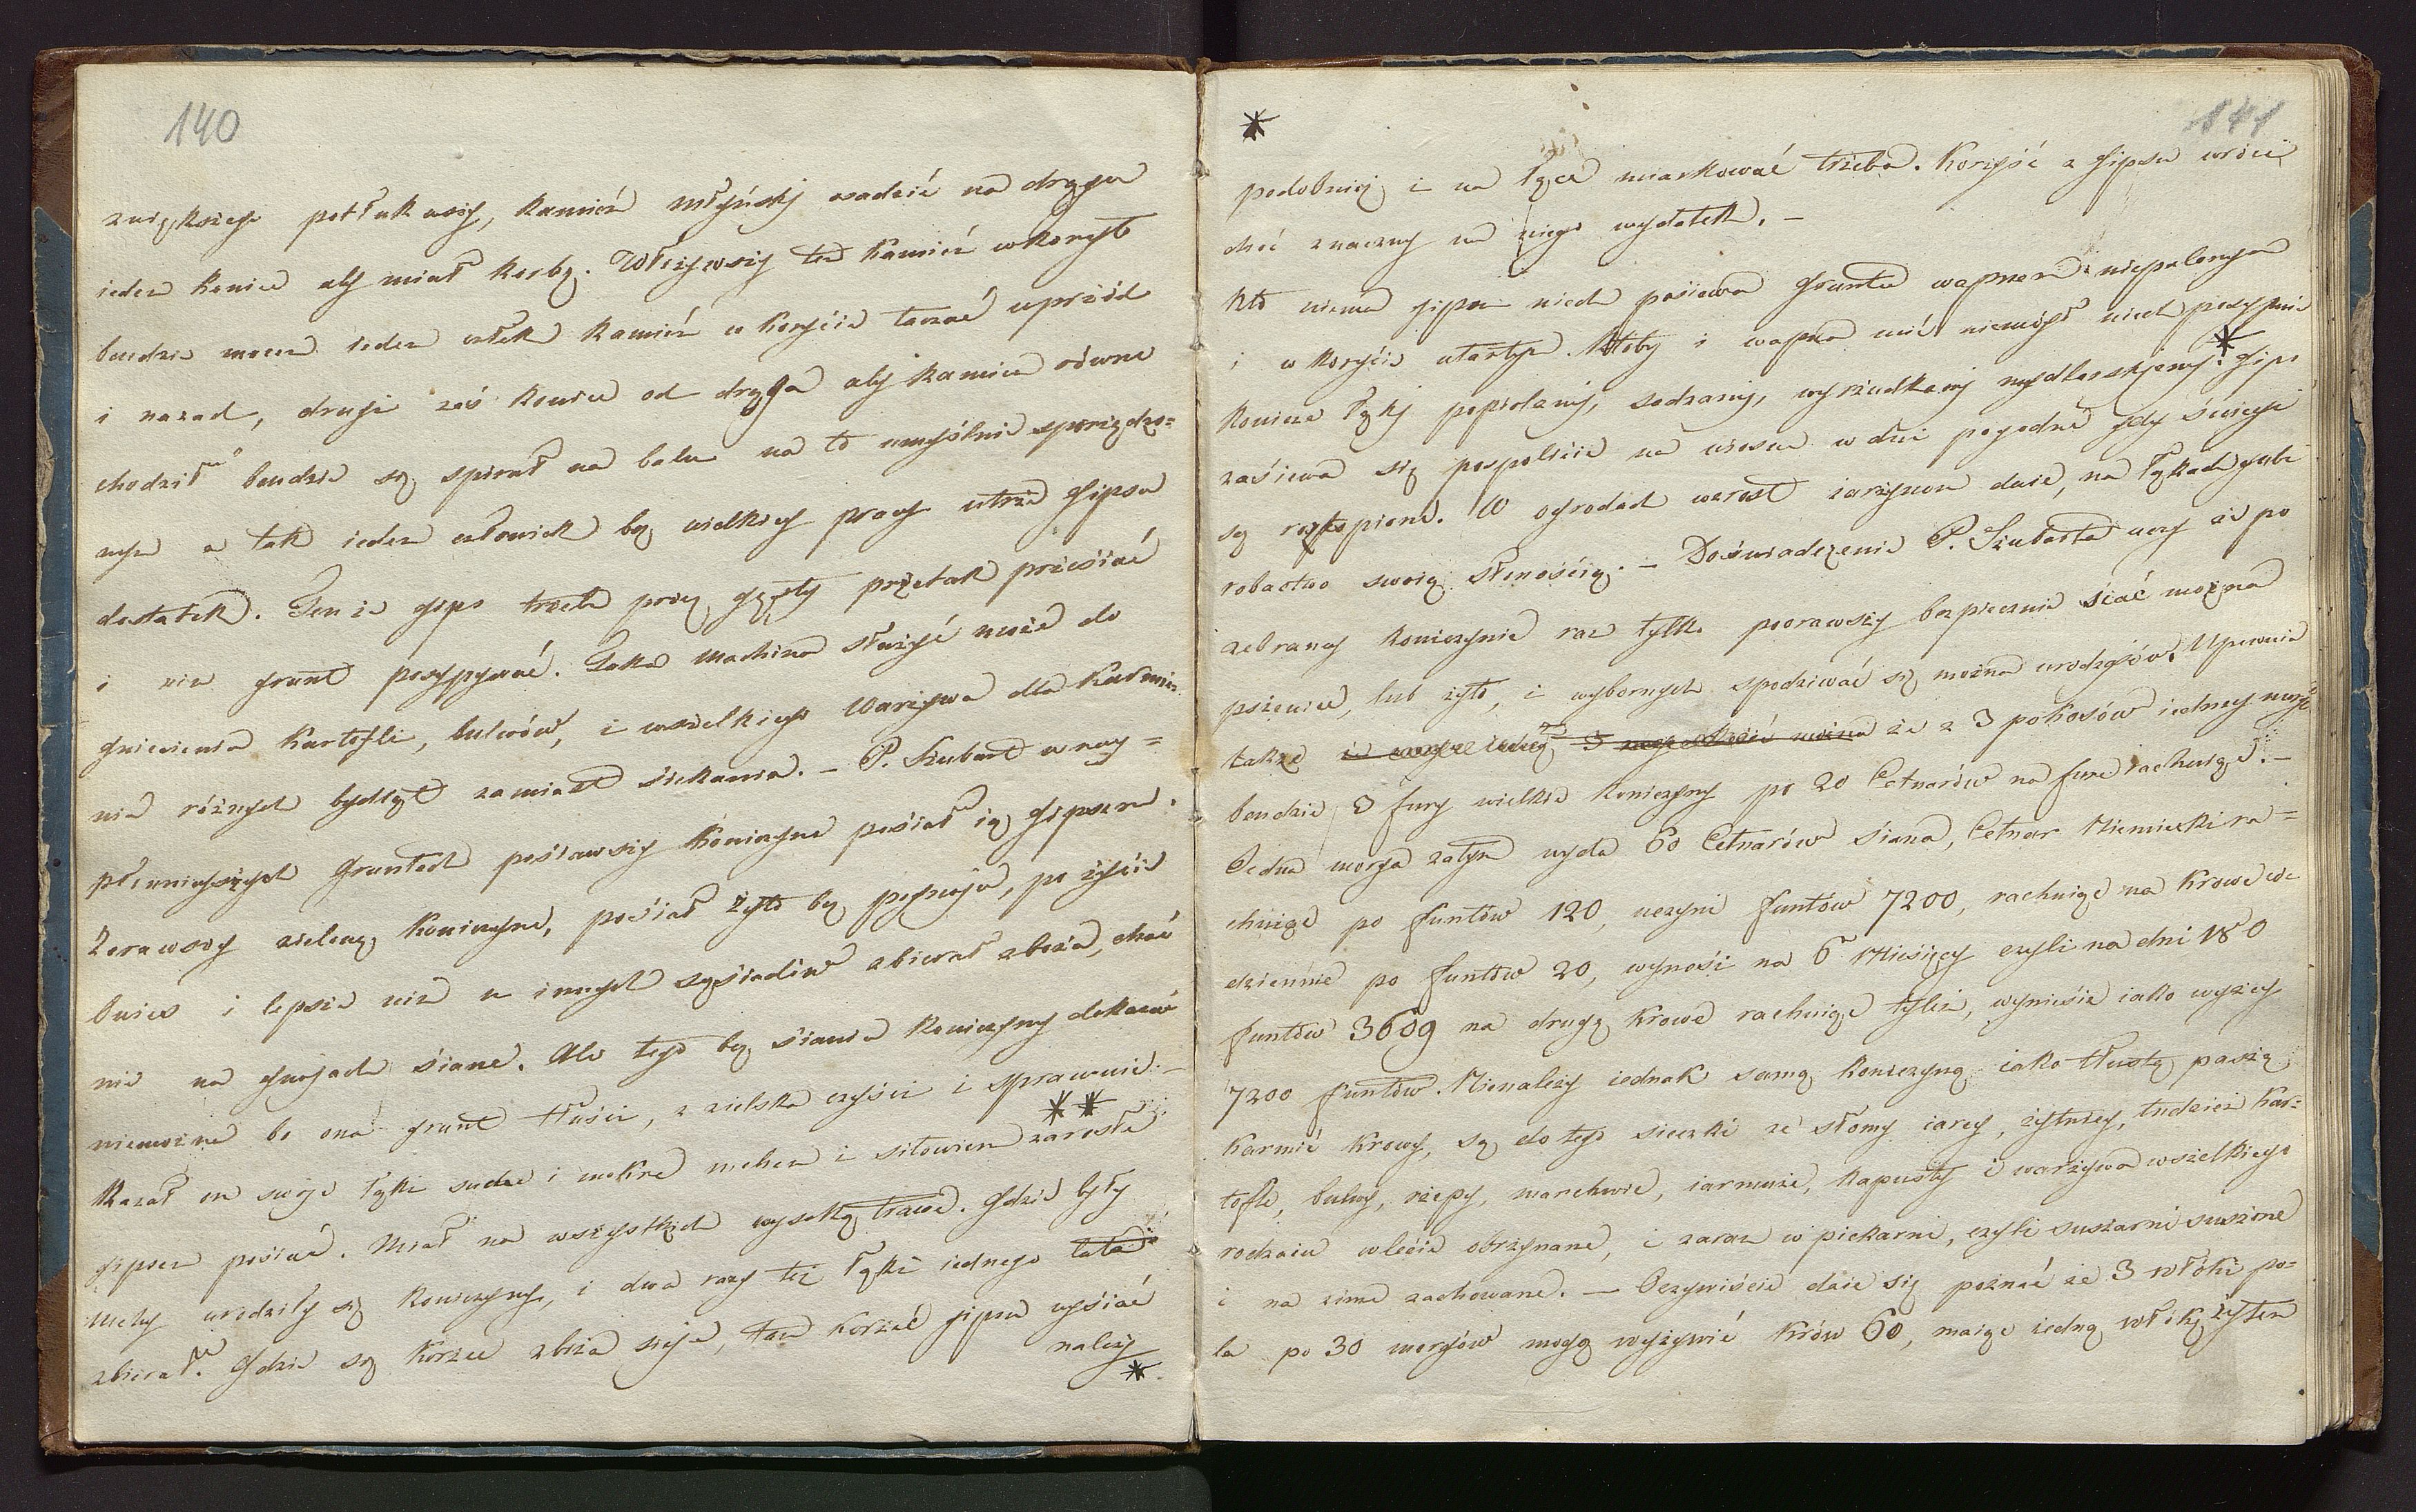 140
zwiększego potłukwszy, kamień młyński osadzić na drągu
ieden koniec aby miał korbę. Włożywszy ten kamień w koryto
bendzie mocen ieden człek kamień w korycie taczać w przód
i nazad, drugi zaś koniec od drąga aby kamień równo
chodził bendzie się spierał na balu na to umyślnie sporządzo=
nym a tak ieden człowiek bez wielkiey pracy utrze gipsu
dostatek. Ten że gips trzeba przez gęsty przetak przesiać
i nim grunt posypywać. Taka machina służyć może do
gniecenia kartofli, bulwów, i wszelkiego warzywa dla karmie=
nia różnych bydląt zamiast siekania. – P. Szubart w nay=
płonnieyszych gruntach posiawszy koniczyne posiał ią gipsem.
Zorawszy zieloną koniczyne, posiał żyto bez pognoju, po życie
owies i lepsze niż u innych sąsiadów zbierał zboża, choć
nie na gnojach siane. Ale tego bez siania koniczyny dokazać
niemożna bo ona grunt tłuści, z zielska czyści i sprawuie. –
Kazał on swoje łąki suche i mokre mchem i sitowiem zarosłe
**
gipsem posiać. Miał na wszystkich wysoką trawe. Gdzie były
mchy urodziły się koniczyny, i dwa razy też łąki iednego lata
zbierał. Gdzie się korzec zboża sieje, tam korzec gipsu wysiać
należy
*
*
141
podobniej i na łące miarkować trzeba. Korzyść z gipsu wróci
choć znaczny na niego wydatek. –
Kto niema gipsu niech posiewa grunta wapnem niepalonym
i w korycie utartym. Ktoby i wapna mieć niemógł niech posypuie
*
koniecznie łąki popiołami, sadzami, wyrzudkami mydlarskiemi. Gips
zasiewa się pospolicie na wiosne w dni pogodne gdy śniegi
są roztopione. W ogrodach wzrost iarzynom daie, na łąkach gubi
robactwo swoią słonością. – Doświadczenie P. Szubarta uczy że po
zebraney koniczynie raz tylko poorawszy bezpiecznie siać można
pszenice, lub żyto, i wybornych spodziwać się można urodzajów. Upewnia
także że z 3 pokosów iedney morgi
bendzie 3 fury wielkie koniczyny po 20 Cetnarów na fure rachuiąc. –
Jedna morga zatym wyda 60 Cetnarów siana, Cetnar Niemiecki ra=
chuiąc po funtów 120, uczyni funtów 7200, rachuiąc na krowe co
dziennie po funtów 20, wynosi na 6 Miesięcy czyli na dni 180
funtów 3609 na drugą krowe rachuiąc tyleż, wyniesie iako wyżey
7200 funtów. Nienależy iednak samą koniczyną iako tłustą paszą
karmić krowy, są do tego sieczki ze słomy iarey, żytniey, tudzież kar=
tofle, bulwy, rzepy, marchwie, iarmuże, kapusty i warzywa wszelkiego
rodzaiu w lecie obrzynane, i zaraz w piekarni, czyli suszarni suszone
i na zime zachowane. – Oczywiście daie się poznać że 3 włóki po=
la po 30 morgów mogą wyżywić krów 60, maiąc iedną włókę żytem